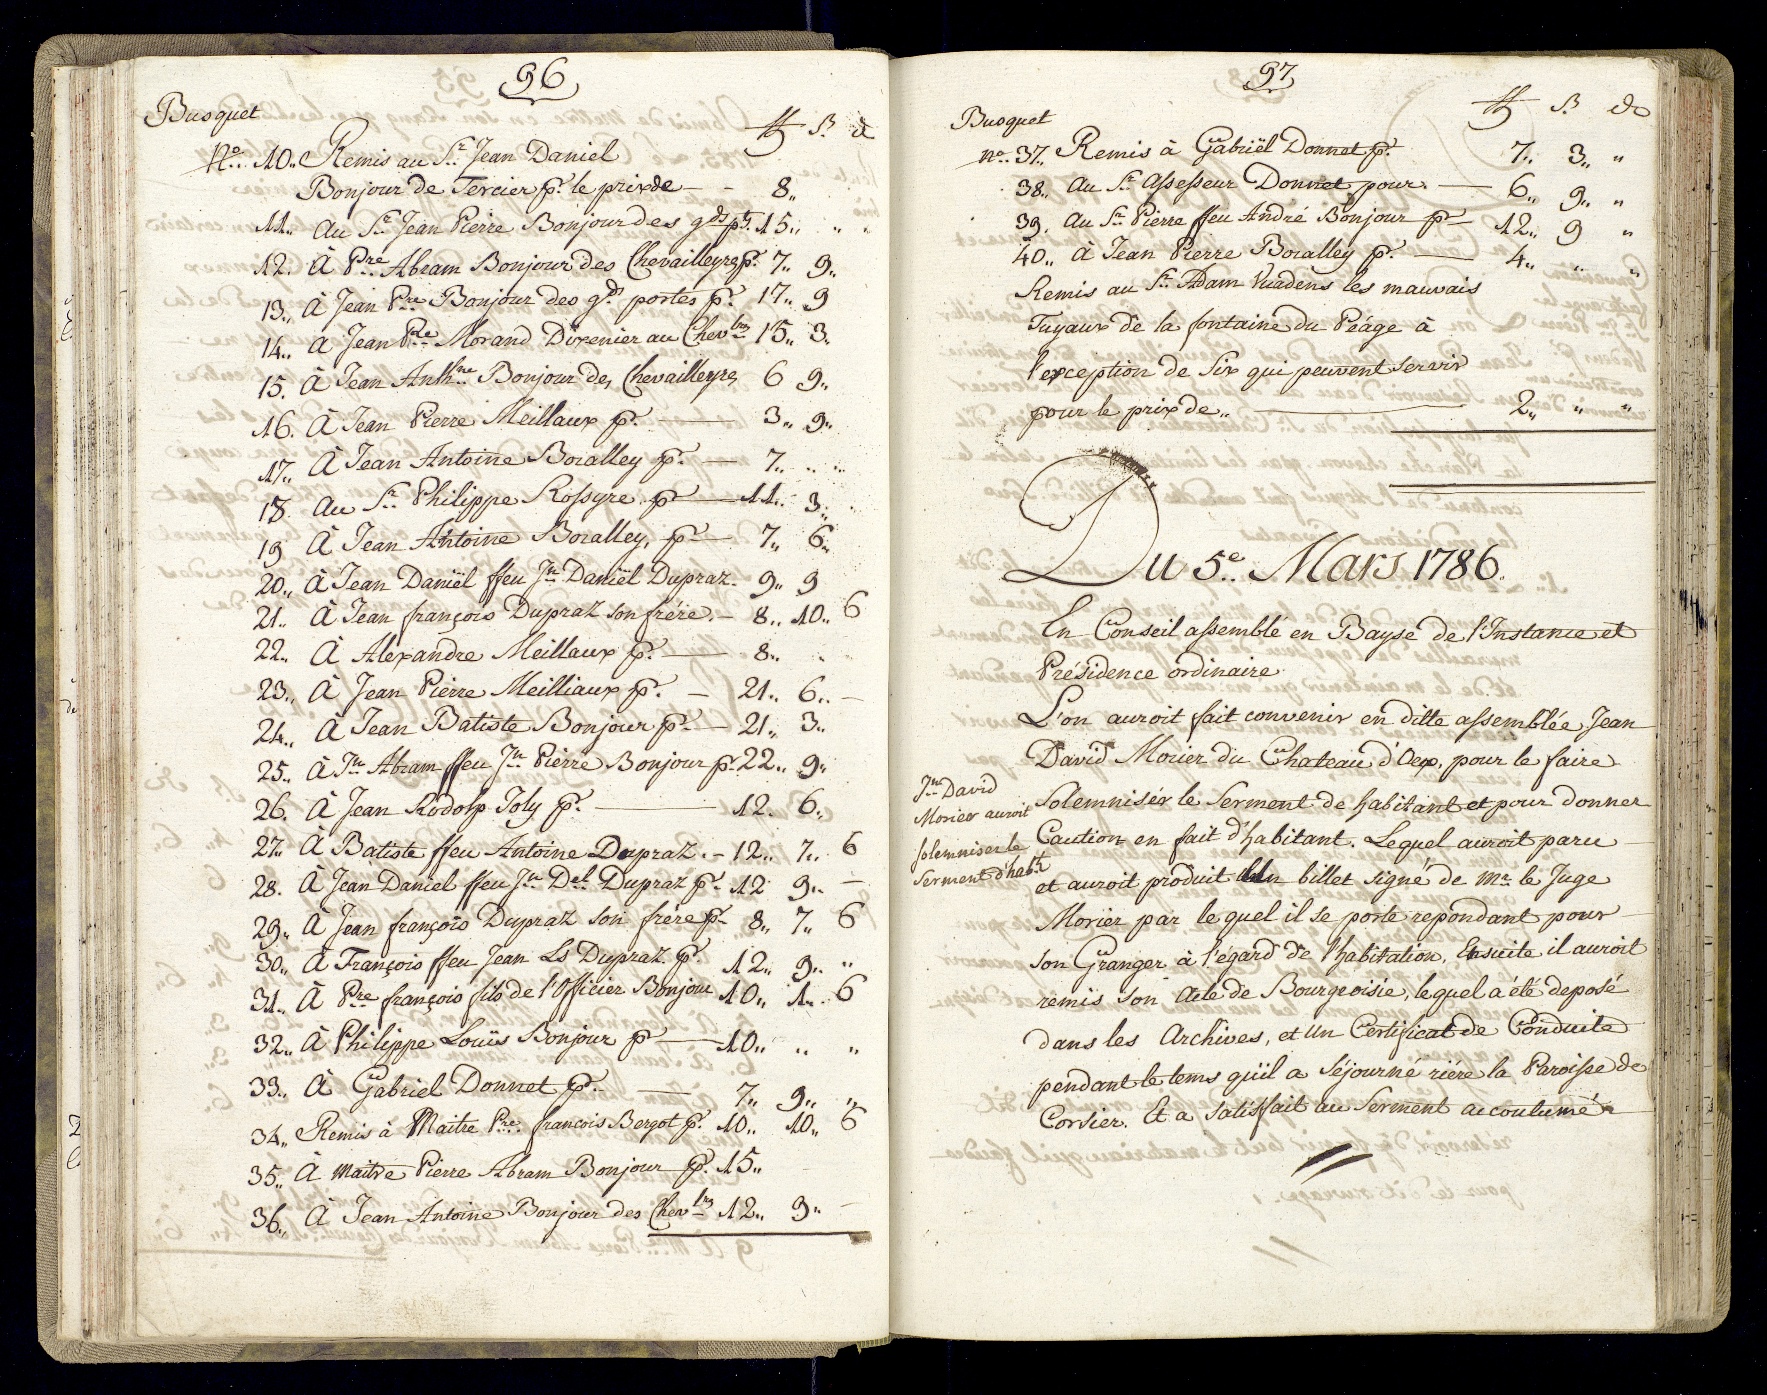 96
Busquet
₶ ß d
No. 10.. Remis au Sr. Jean Daniel
Bonjour de Tercier pr. le prix de - - 8..
11.. Au Sr. Jean Pierre Bonjour des gds pts. 15.. " "
12. À Pre Abram Bonjour des Chevailleyres pr. 7.. 9..
13.. À Jean Pre Bonjour des gds portes pr. 17.. 9
14.. À Jean Pre Morand Dixenier au Chevlres 15.. 3.
15. À Jean Anthne Bonjour des Chevailleyres 6 9..
16. À Jean Pierre Meillaux pr. — 3.. 9..
17.. À Jean Antoine Boralley pr. — 7.. .. ..
18. Au Sr. Philippe Rossyre pr — 11.. 3..
19 À Jean Antoine Boralley, pr — 7.. 6..
20.. À Jean Daniël ffeu Jn Daniël Dupraz. 9.. 9
21.. À Jean françois Dupraz son frére. - 8.. 10.. 6
22.. À Alexandre Meillaux pr. — 8.. .
23.. À Jean Piérre Meilliaux pr. — 21.. 6.. —
24.. À Jean Batiste Bonjour pr. — 21.. 3..
25.. À Jn Abram ffeu Jn Pierre Bonjour pr. 22.. 9..
26. À Jean Rodolp Joly pr. — 12. 6..
27.. À Batiste ffeu Antoine Dupraz. - 12.. 7.. 6
28. À Jean Daniel ffeu Jn Del Dupraz pr. 12 9.. —
29.. À Jean françois Dupraz son frére pr. 8.. 7.. 6
30.. À François ffeu Jean Ls Dupraz. pr. 12.. 9.. "
31.. À Pre françois fils de l'Officier Bonjour 10.. 1.. 6
32.. À Philippe Louïs Bonjour pr — 10.. .. "
33.. À Gabriel Donnet pr. — 7.. 9.. "
34.. Remis à Maitre Pre. francois Bergot pr. 10.. 10.. 6
35.. À Maitre Pierre Abram Bonjour pr. 15..
36.. À Jean Antoine Bonjour des Chevlres 12.. 9.. —
97
Busquet
₶ ß d
No. 37.. Remis à Gabriël Donnet pr. 7.. 3.. "
38.. Au Sr Assesseur Donnet pour. — 6.. 9.. "
39. Au Sr Pierre ffeu André Bonjour pr 12.. 9 "
40.. À Jean Pierre Boralley pr. — 4.. " "
Remis au Sr. Adam Vuadens les mauvais
Tuyaux de la fontaine du Péage à
l'exception de Six qui peuvent servir
pour le prix de.. — 2.. " "
Du 5e. Mars 1786.
En Conseil assemblé en Bayse de l'Instance et
Présidence ordinaire
L'on auroit fait convenir en ditte assemblée Jean
David Morier du Chateau d'Oex, pour le faire
Jn David
Morier auroit
solemniser le
Serment d'habt
Solemniser le Serment de habitant et pour donner
Caution en fait d'habitant. Lequel auroit paru
et auroit produit Un billet signé de Mr. le Juge
Morier par lequel il se porte repondant pour
son Granger à l'égard de l'habitation. Ensuite il auroit
remis son Acte de Bourgeoisie, lequel a été deposé
dans les Archives, et Un Certificat de Conduite
pendant le tems qüil a Séjourné riére la Paroisse de
Corsier. Et a satisfait au Serment accoutumé